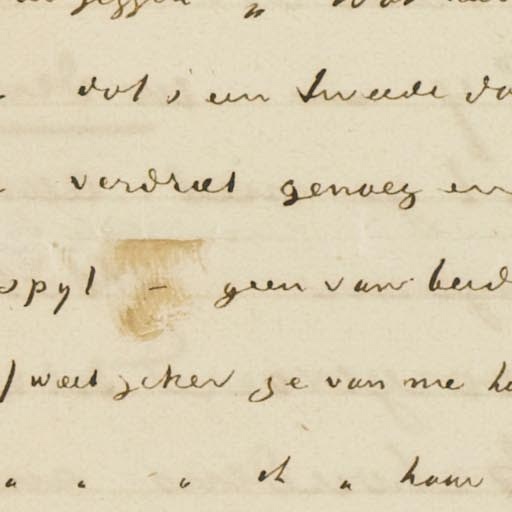 zeggen „ Wat
dat 's een tweede
verdriet genoeg en
spyt – geen van beid
weet zeker ze van me
„ „ „ ik „ haar